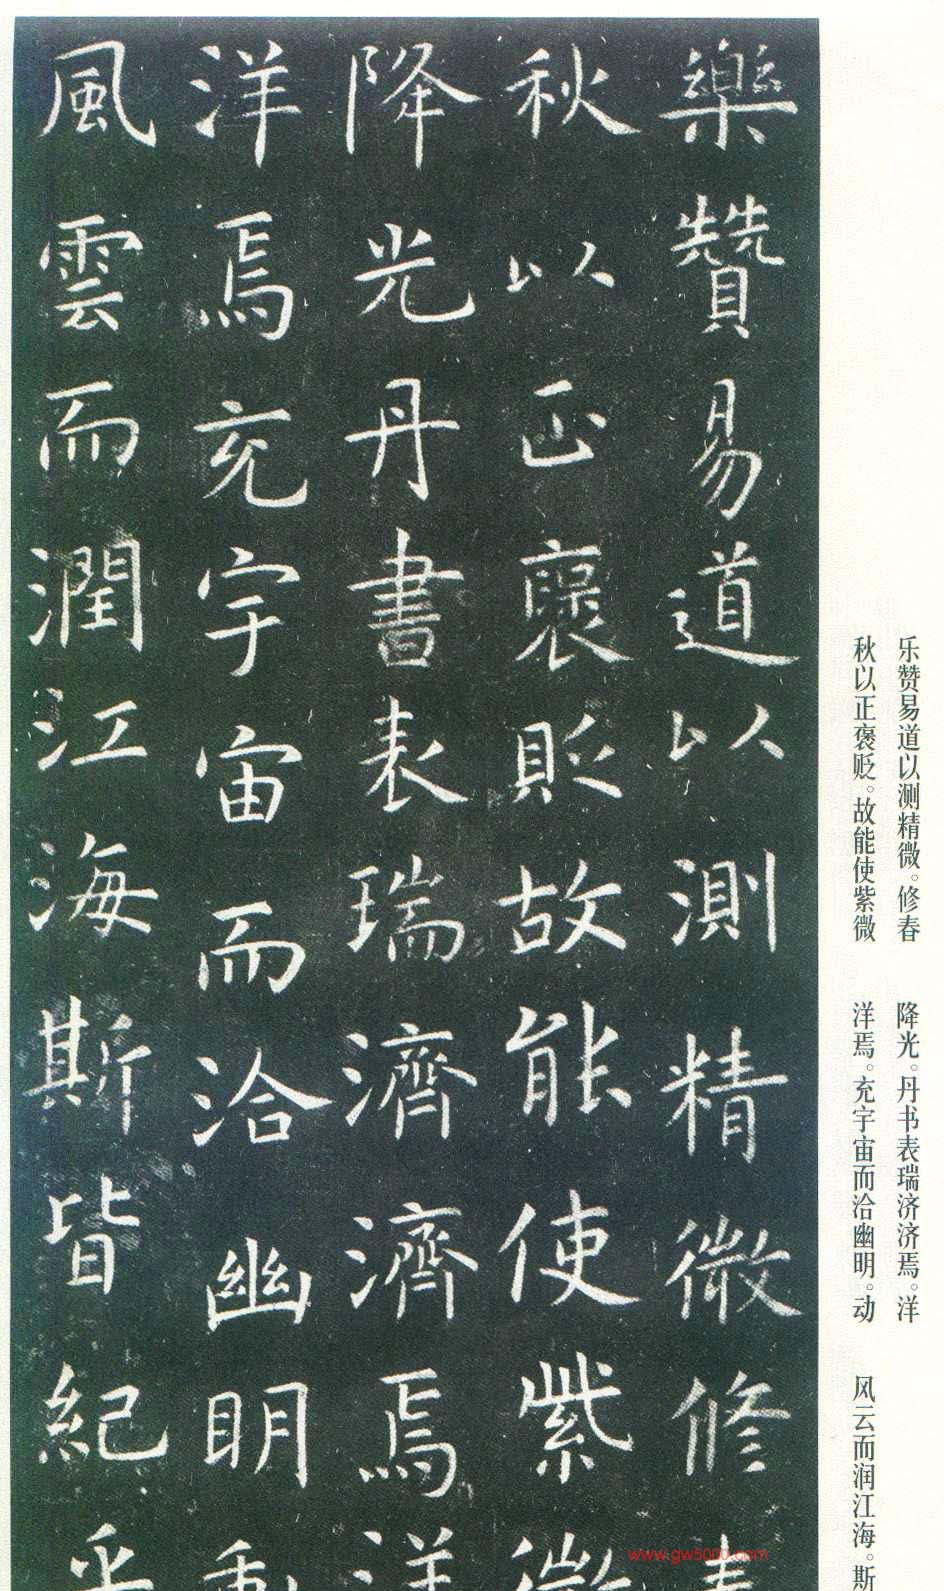 樂贊易道以測精微修春
秋以正褒貶故能使紫微
降光丹書表瑞濟濟焉洋
洋焉充宇宙而洽幽明動
風雲而潤江海斯皆紀乎
乐赞易道以测精微。修春
秋以正褒贬。故能使紫微
降光。丹书表瑞济济焉。洋
洋焉。充宇宙而洽幽明。动
风云而润江海。斯
www.gw5000.com